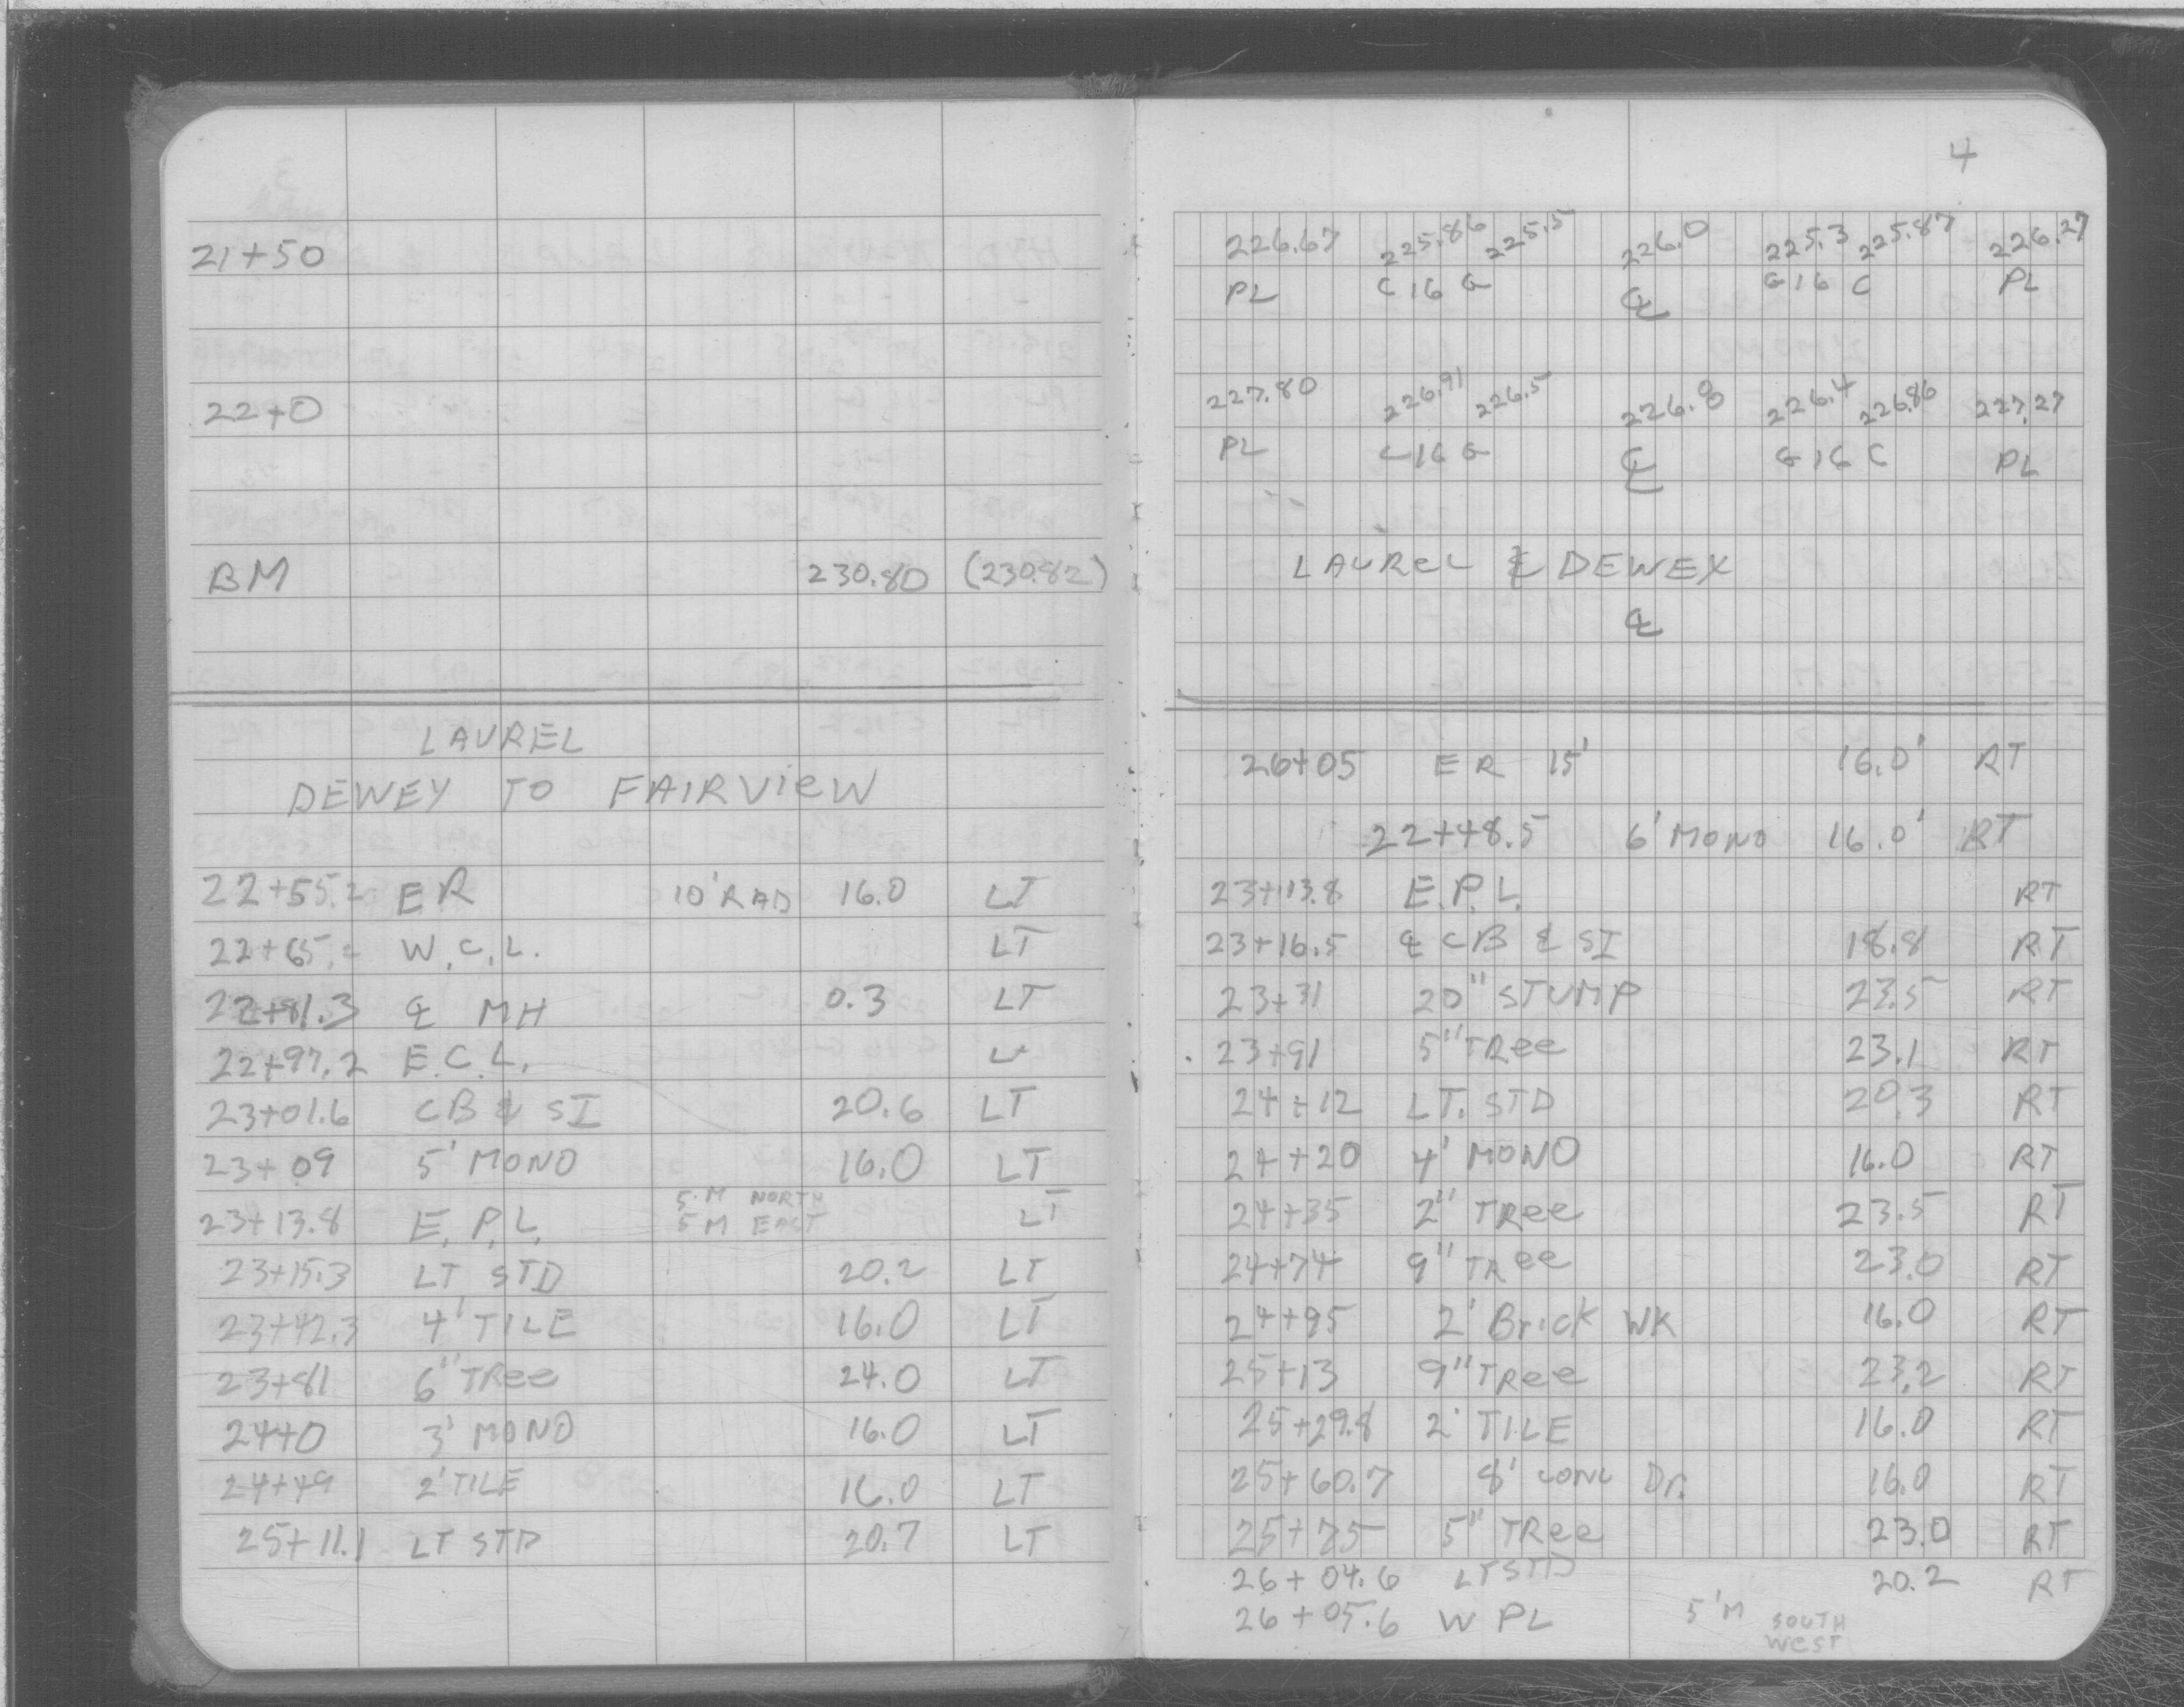 21+50
22+0
BM 230.80 (230.82)
LAUREL
DEWEY TO FAIRVIEW
22+55.2 ER 10' RAD 16.0 LT
22+65.2 W.C.L. LT
22+81.3 ℄ MH 0.3 LT
22+97.2 E.C.L. LT
23+01.6 CB & SI 20.6 LT
23+09 5' MONO 16.0 LT
5 M NORTH
23+13.8 E.P.L. 5 M EAST LT
23+15.3 LT STD 20.2 LT
23+42.3 4' TILE 16.0 LT
23+81 6" TRee 24.0 LT
24+0 3' MONO 16.0 LT
24+49 2' TILE 16.0 LT
25+11.1 LT STD 20.7 LT
4
226.67 225.86 225.5 226.0 225.3 225.87 226.27
PL C 16 G ℄ G 16 C PL
227.80 226.91 226.5 226.8 226.4 226.86 227.27
PL C 16 G ℄ G 16 C PL
LAUReL & DEWEY
℄
26+05 ER 15' 16.0' RT
22+48.5 6' MONO 16.0' RT
23+13.8 E.P.L. RT
23+16.5 ℄ CB & SI 18.8 RT
23+31 20" STUMP 23.5 RT
23+91 5" TRee 23.1 RT
24+12 LT. STD 20.3 RT
24+20 4' MONO 16.0 RT
24+35 2" TRee 23.5 RT
24+74 9" TRee 23.0 RT
24+95 2' Brick WK 16.0 RT
25+13 9" TRee 23.2 RT
25+29.8 2' TILE 16.0 RT
25+60.7 8' CONC Dr. 16.0 RT
25+75 5" TRee 23.0 RT
26+04.6 LT STD 20.2 RT
26+05.6 W PL 5'M SOUTH
WeST